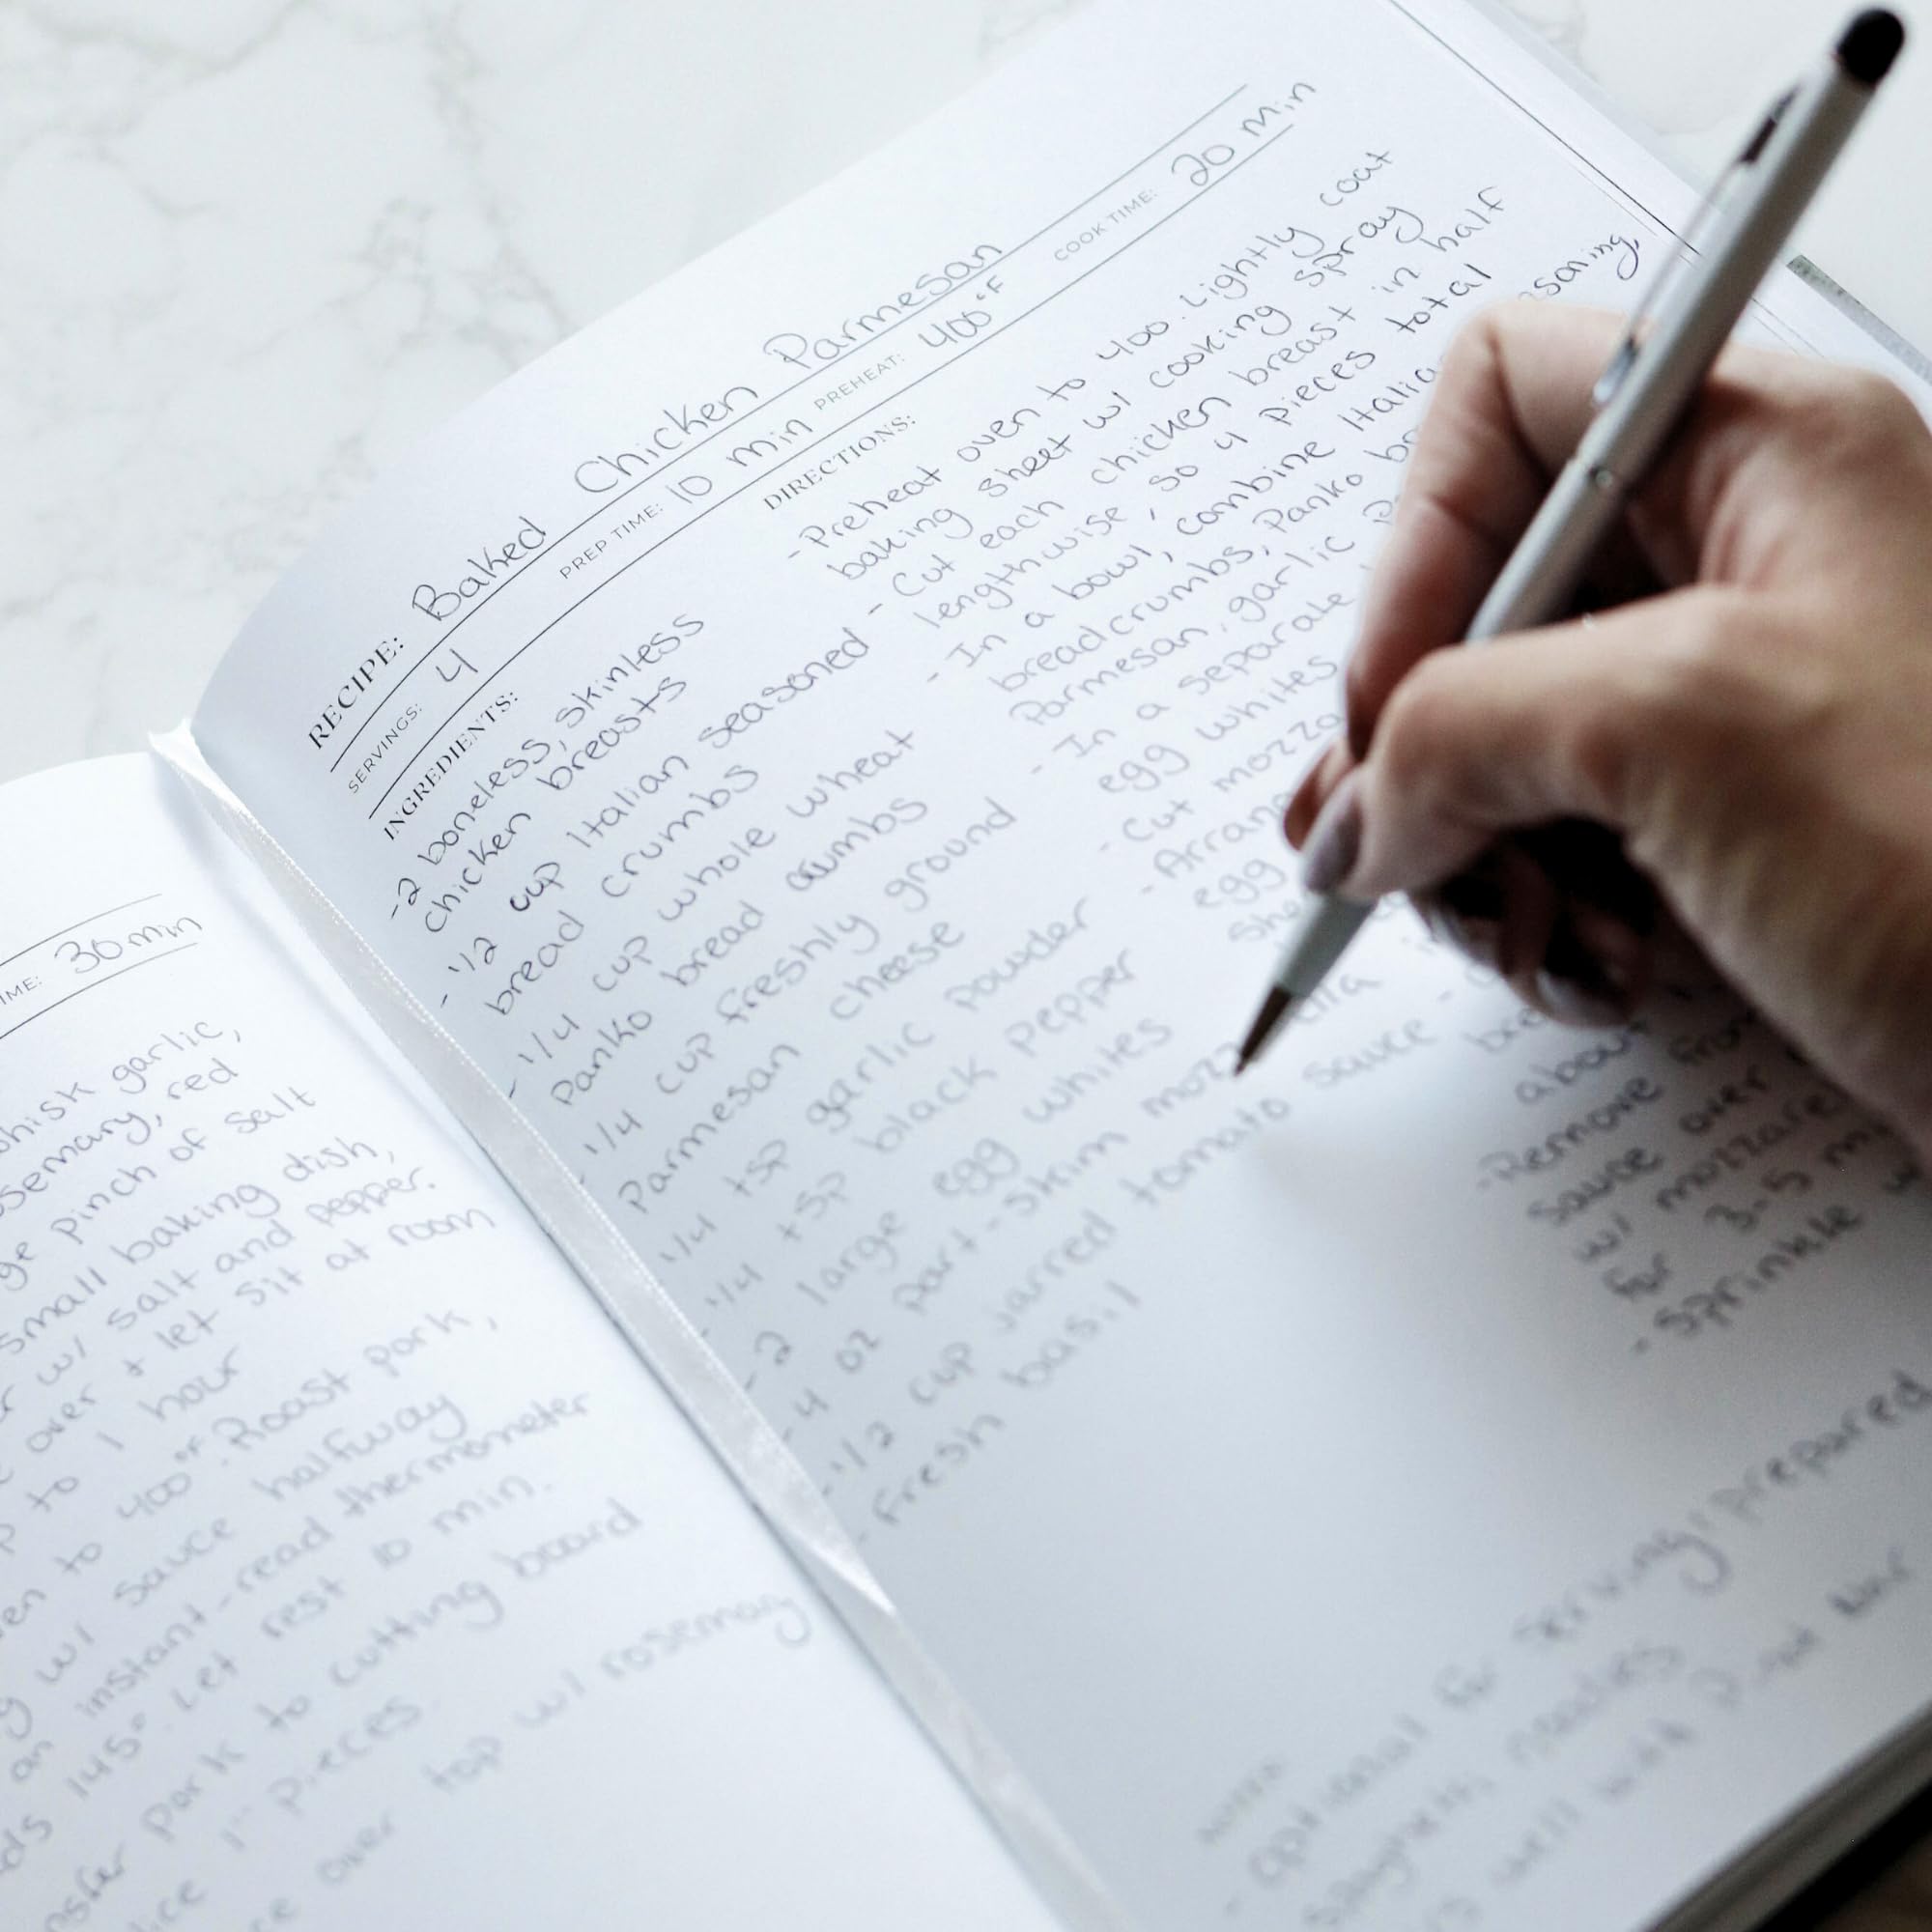 IME: 30 min
whisk garlic,
semary, red
ge pinch of salt
small baking dish,
w/ salt and pepper.
over + let sit at room
to 1 hour
to 400°F. Roast pork,
w/ sauce halfway
an instant-read thermometer
145°. Let rest 10 min.
pork to cutting board
1" pieces.
over top w/ rosemary
RECIPE: Baked Chicken Parmesan
SERVINGS: 4 PREP TIME: 10 min PREHEAT: 400°F COOK TIME: 20 min
INGREDIENTS:
- 2 boneless, skinless
chicken breasts
- 1/2 cup Italian seasoned
bread crumbs
- 1/4 cup whole wheat
Panko bread crumbs
- 1/4 cup freshly ground
Parmesan cheese
- 1/4 tsp garlic powder
- 1/4 tsp black pepper
- 2 large egg whites
- 4 oz part-skim mozz
- 1/2 cup jarred tomato sauce
- Fresh basil
DIRECTIONS:
- Preheat oven to 400. Lightly coat
baking sheet w/ cooking spray
- Cut each chicken breast in half
lengthwise, so 4 pieces total
- In a bowl, combine Italia soning,
breadcrumbs, Panko
Parmesan, garlic
- In a separate
egg whites
- Cut mozza
- Arran
egg
about
- Remove fro
sauce over
w/ mozzare
for 3-5 m
- Sprinkle
NOTES
- optional for serving: prepared
spaghetti noodles
well with